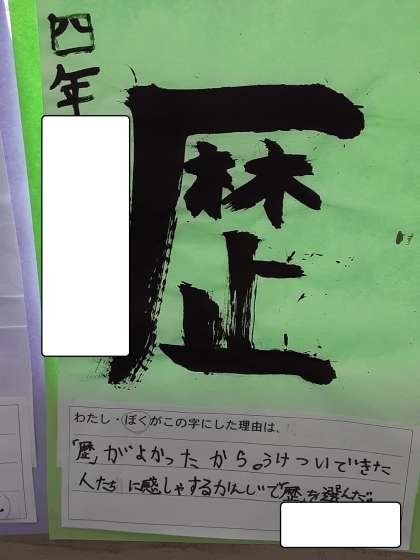 四年
歴
わたし・ぼくがこの字にした理由は、
「歴」がよかったから。うけついできた
人たちに感しゃするかんじで「歴」を選んだ。